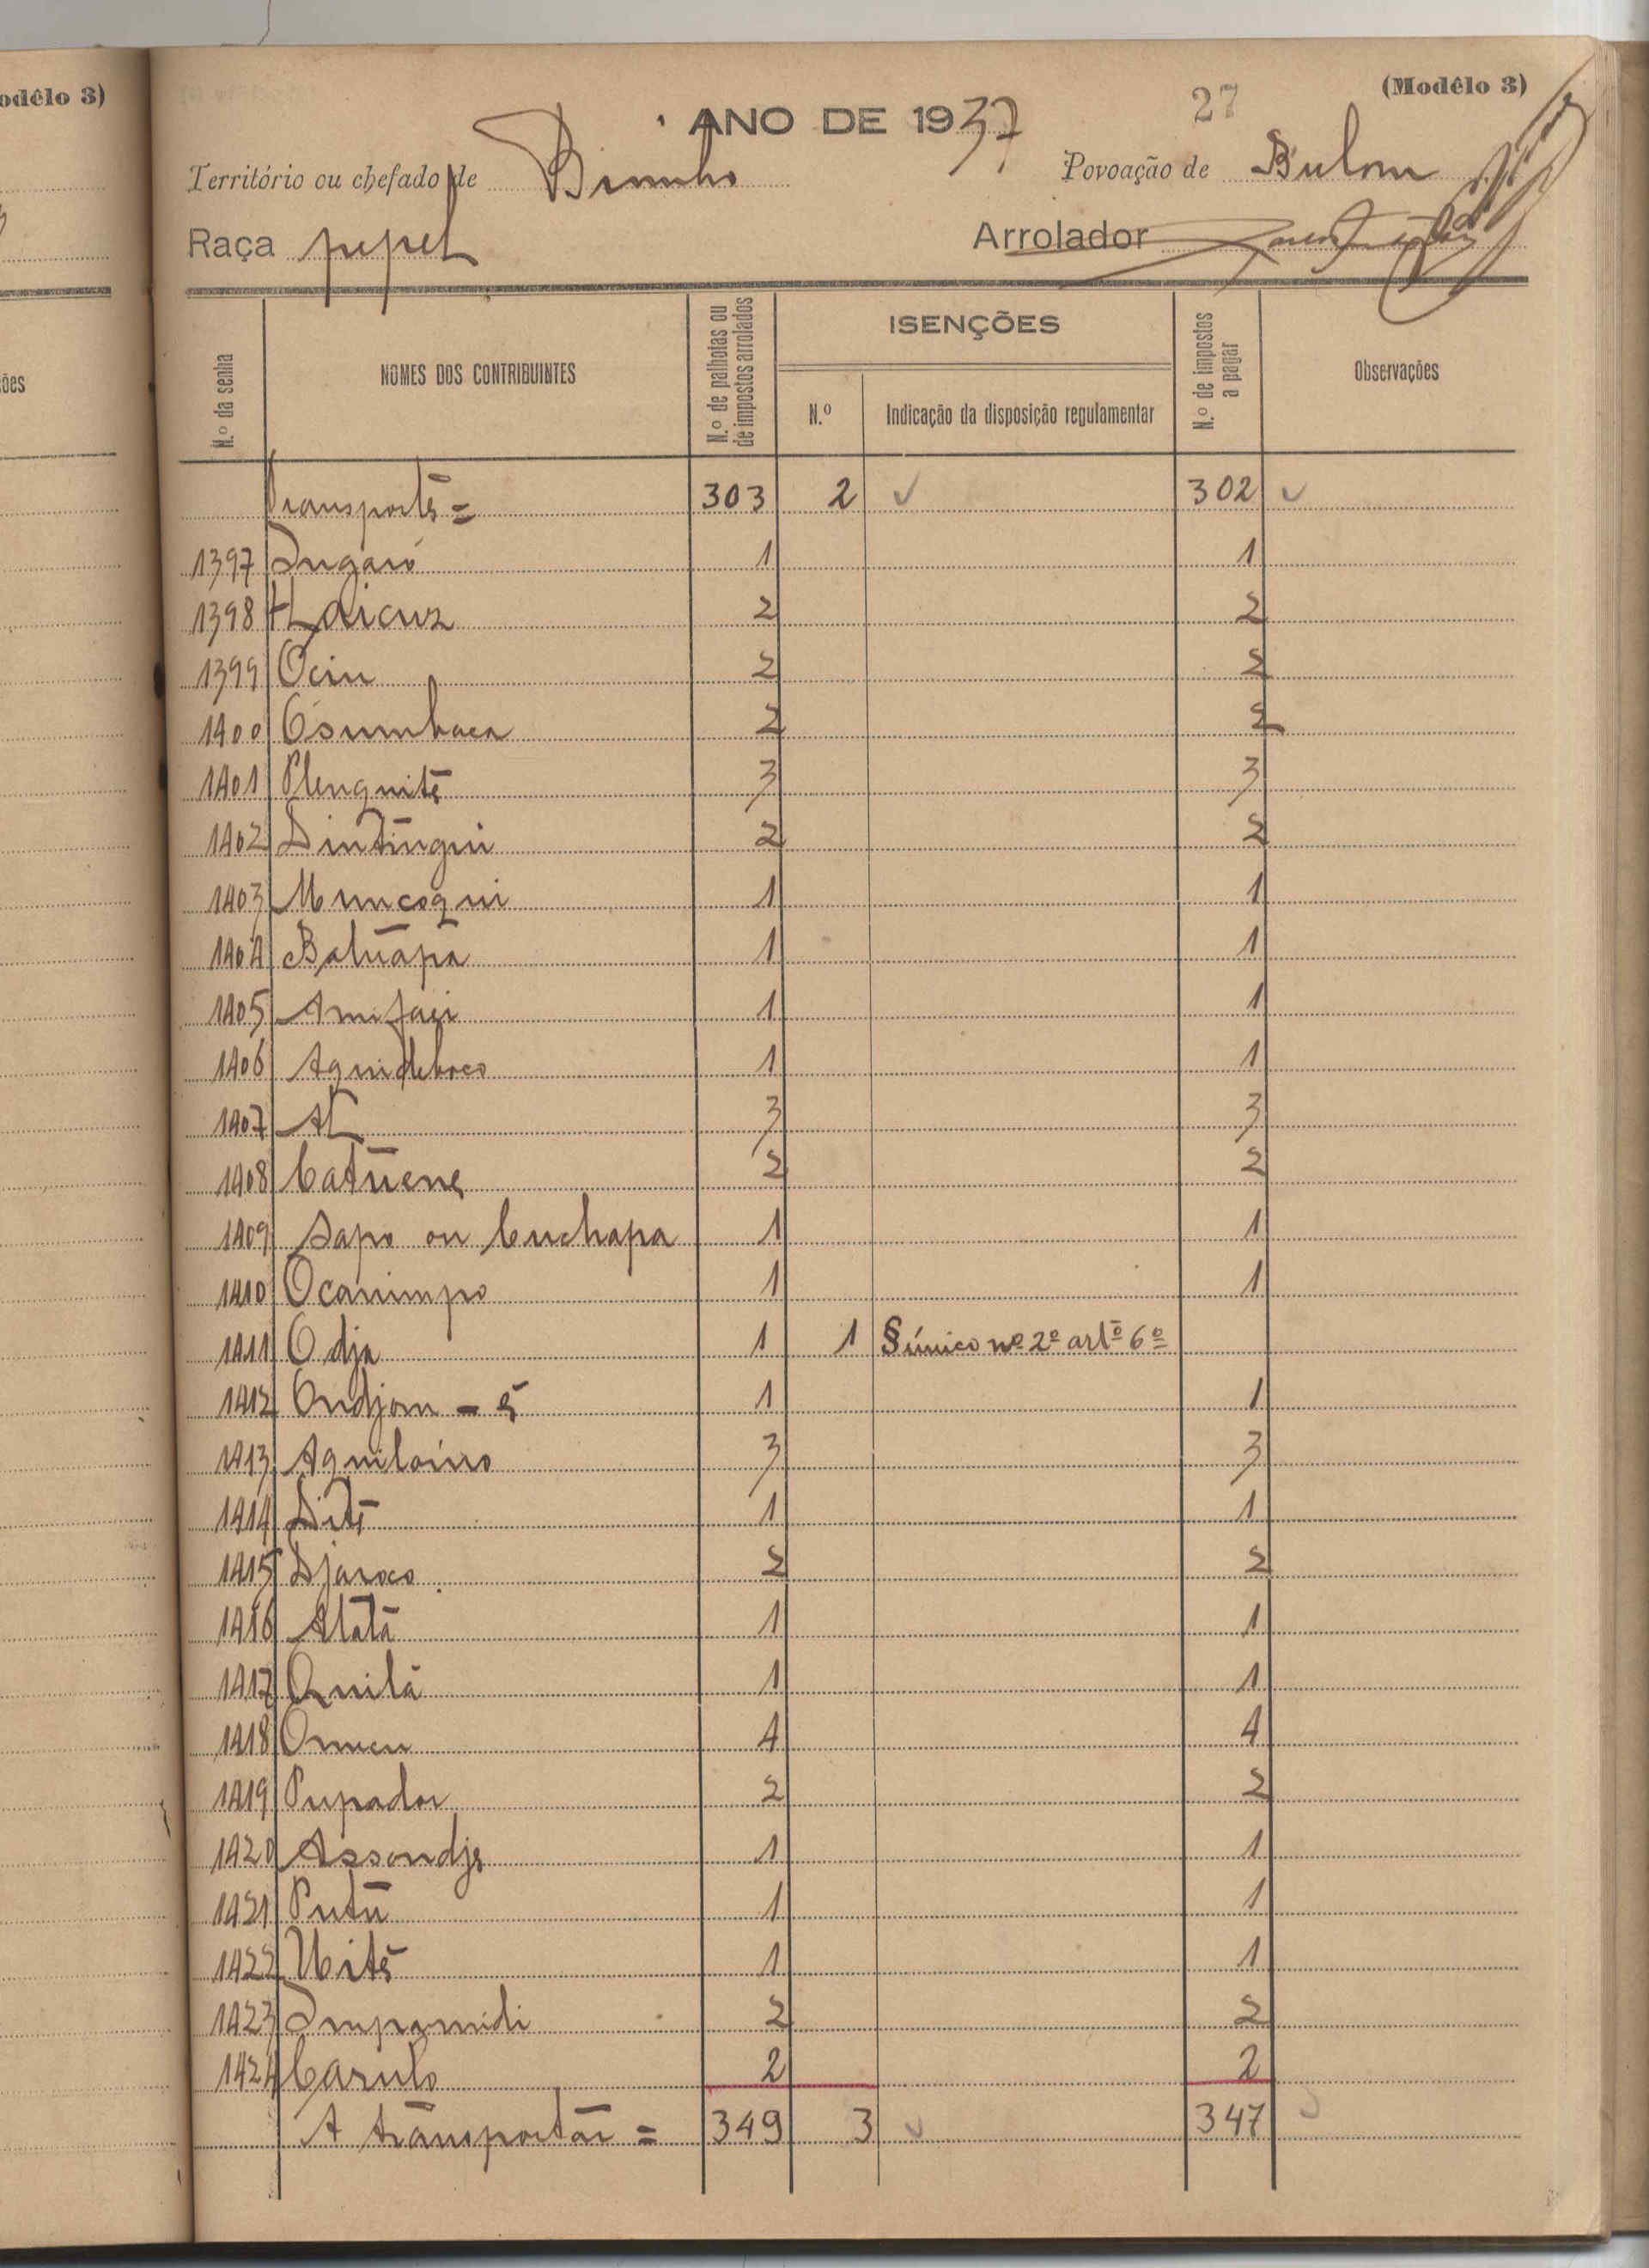 odêlo 3)
ões
(Modêlo 3)
27
ANO DE 1937
Território ou chefado de Biombo
Povoação de Bulom
Raça pepel
Arrolador
N.º da senha
NOMES DOS CONTRIBUINTES
N.º de palhotas ou de impostos arrolados
ISENÇÕES
N.º
Indicação da disposição regulamentar
N.º de impostos a pagar
Observações
Transporte = 303 2 302
1397 Ingaró 1 1
1398 2 2
1399 Ocin 2 2
1400 Osumbaca 2 2
1401 Plenquitê 3 3
1402 Dintingui 2 2
1403 Muncoqui 1 1
1404 Batuapa 1 1
1405 1 1
1406 1 1
1407 3 3
1408 Catuene 2 2
1409 Sapo ou Cuchapa 1 1
1410 Ocanimpo 1 1
1411 Odja 1 1 § único nº 2º artº 6º
1412 Ondjom - é 1 1
1413 3 3
1414 Dité 1 1
1415 Djaroco 2 2
1416 Atatá 1 1
1417 Quilá 1 1
1418 4 4
1419 Pupador 2 2
1420 Assondje 1 1
1421 Putú 1 1
1422 Uité 1 1
1423 2 2
1424 2 2
A transportar = 349 3 347